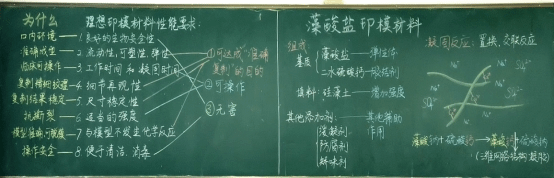 为什么
理想印模材料性能要求
口内环境 — 1.良好的生物安全性
准确成型 — 2.流动性、可塑性、弹性
临床可操作 — 3.工作时间和凝固时间
复制精细纹理 — 4.细节再现性
复制结果稳定 — 5.尺寸稳定性
抗撕裂 — 6.适当的强度
7.与模型不发生化学反应
操作安全 — 8.便于清洁、消毒
①可达成"准确
复制"的目的
②可操作
③无害
藻酸盐印模材料
组成
基质
藻酸盐 — 弹性体
二水硫酸钙 — 胶结剂
填料:硅藻土 — 增加强度
其他添加剂: 其他辅助
作用
缓凝剂
防腐剂
矫味剂
凝固反应: 置换、交联反应
SO₄²⁻
Na⁺
藻酸钠+硫酸钙 → 藻酸钙+硫酸钠
(三维网络结构凝胶)